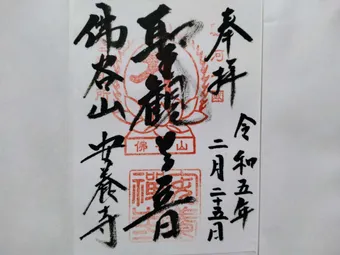 奉拝
令和五年
二月二十五日
聖観世音
佛谷山 安養寺
山佛